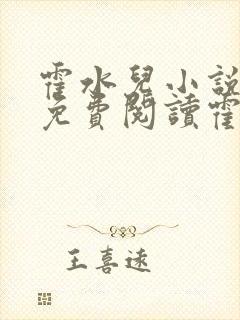 霍水兒小説
免費閱讀霍
王喜遠